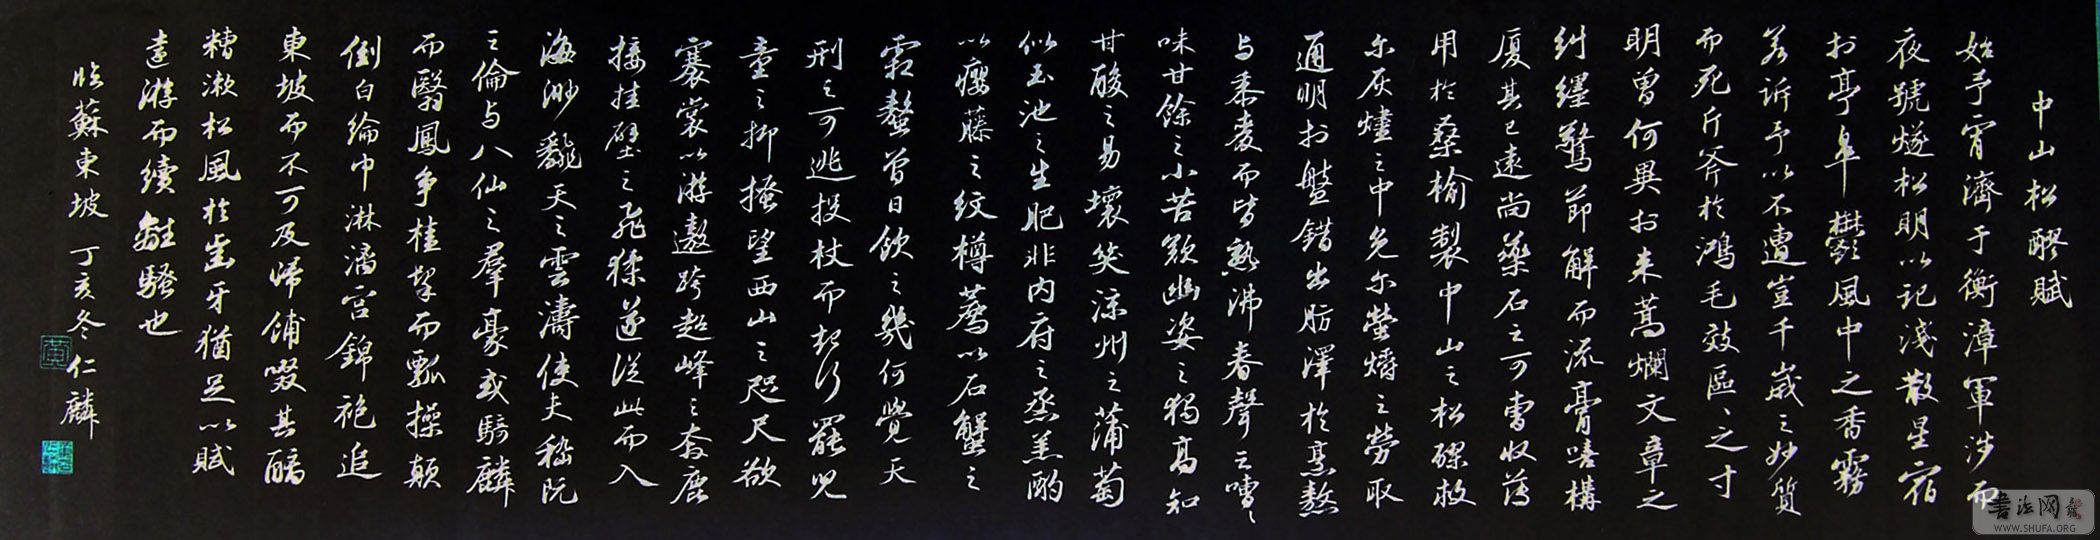 中山松醪賦
始予宵濟于衡漳軍涉而
夜號燧松明以記淺散星宿
於亭皐鬱風中之香霧
若訴予以不遭豈千歲之妙質
而死斤斧於鴻毛效區區之寸
明曾何異於束蒿爛文章之
糾纆驚節解而流膏嘻構
廈其已遠尚藥石之可曹收薄
用於桑榆製中山之松醪救
尔灰燼之中免尔螢爝之勞取
通明於盤錯出肪澤於烹熬
与黍麥而皆熟沸舂聲之嘈嘈
味甘餘之小苦歎幽姿之獨高知
甘酸之易壞笑涼州之蒲萄
似玉池之生肥非内府之烝羔酌
以癭藤之紋樽薦以石蟹之
霜螯曾日飲之幾何覺天
刑之可逃投杖而起行罷兒
童之抑搔望西山之咫尺欲
褰裳以游遨跨超峰之奔鹿
接挂壁之飛猱遂從此而入
海渺翻天之雲濤使夫嵇阮
之倫与八仙之羣豪或騎麟
而翳鳳争榼挈而瓢操顛
倒白綸巾淋漓宫錦袍追
東坡而不可及歸餔啜其醨
糟漱松風於齒牙猶足以賦
遠游而續離騷也
臨蘇東坡 丁亥冬仁麟
書法网
WWW.SHUFA.ORG